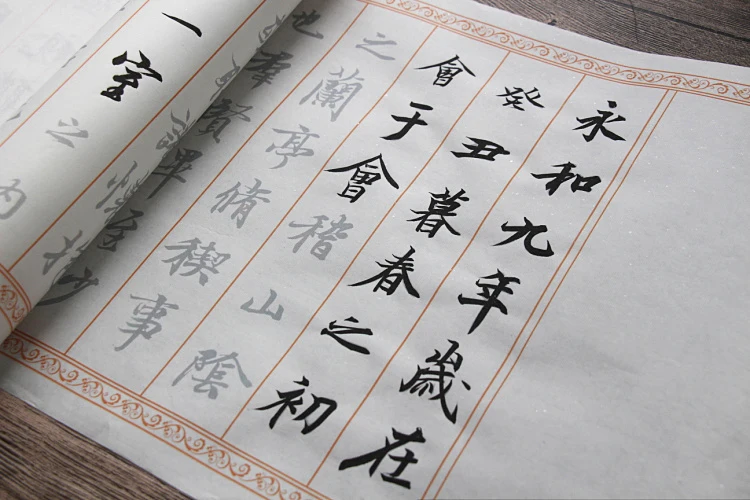 永和九年歲在
癸丑暮春之初
會于會稽山陰
之蘭亭脩禊事
也羣賢畢至少
一室之內